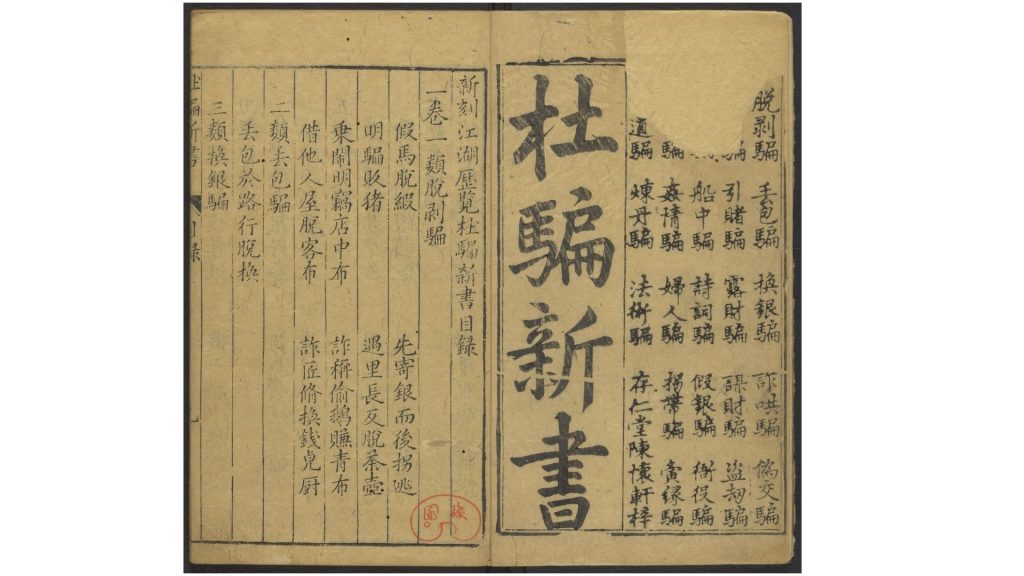 脫剥騙 丢包騙 換銀騙 詐哄騙 偽交騙
騙 引賭騙 露財騙 謀財騙 盜劫騙
船中騙 詩詞騙 假銀騙 衙役騙
騙 姦情騙 婦人騙 拐帶騙 緣騙
道騙 煉丹騙 法術騙 存仁堂陳懷軒梓
杜騙新書
新刻江湖歷覽杜騙新書目録
一卷一類脫剥騙
假馬脫緞 先寄銀而後拐逃
明騙販猪 遇里長反脫茶壺
乗鬧明竊店中布 詐稱偷鵝賺青布
借他人屋脫客布 詐匠脩換錢卓厨
二類丢包騙
丢包於路行脫換
三類換銀騙
杜騙新書 目録